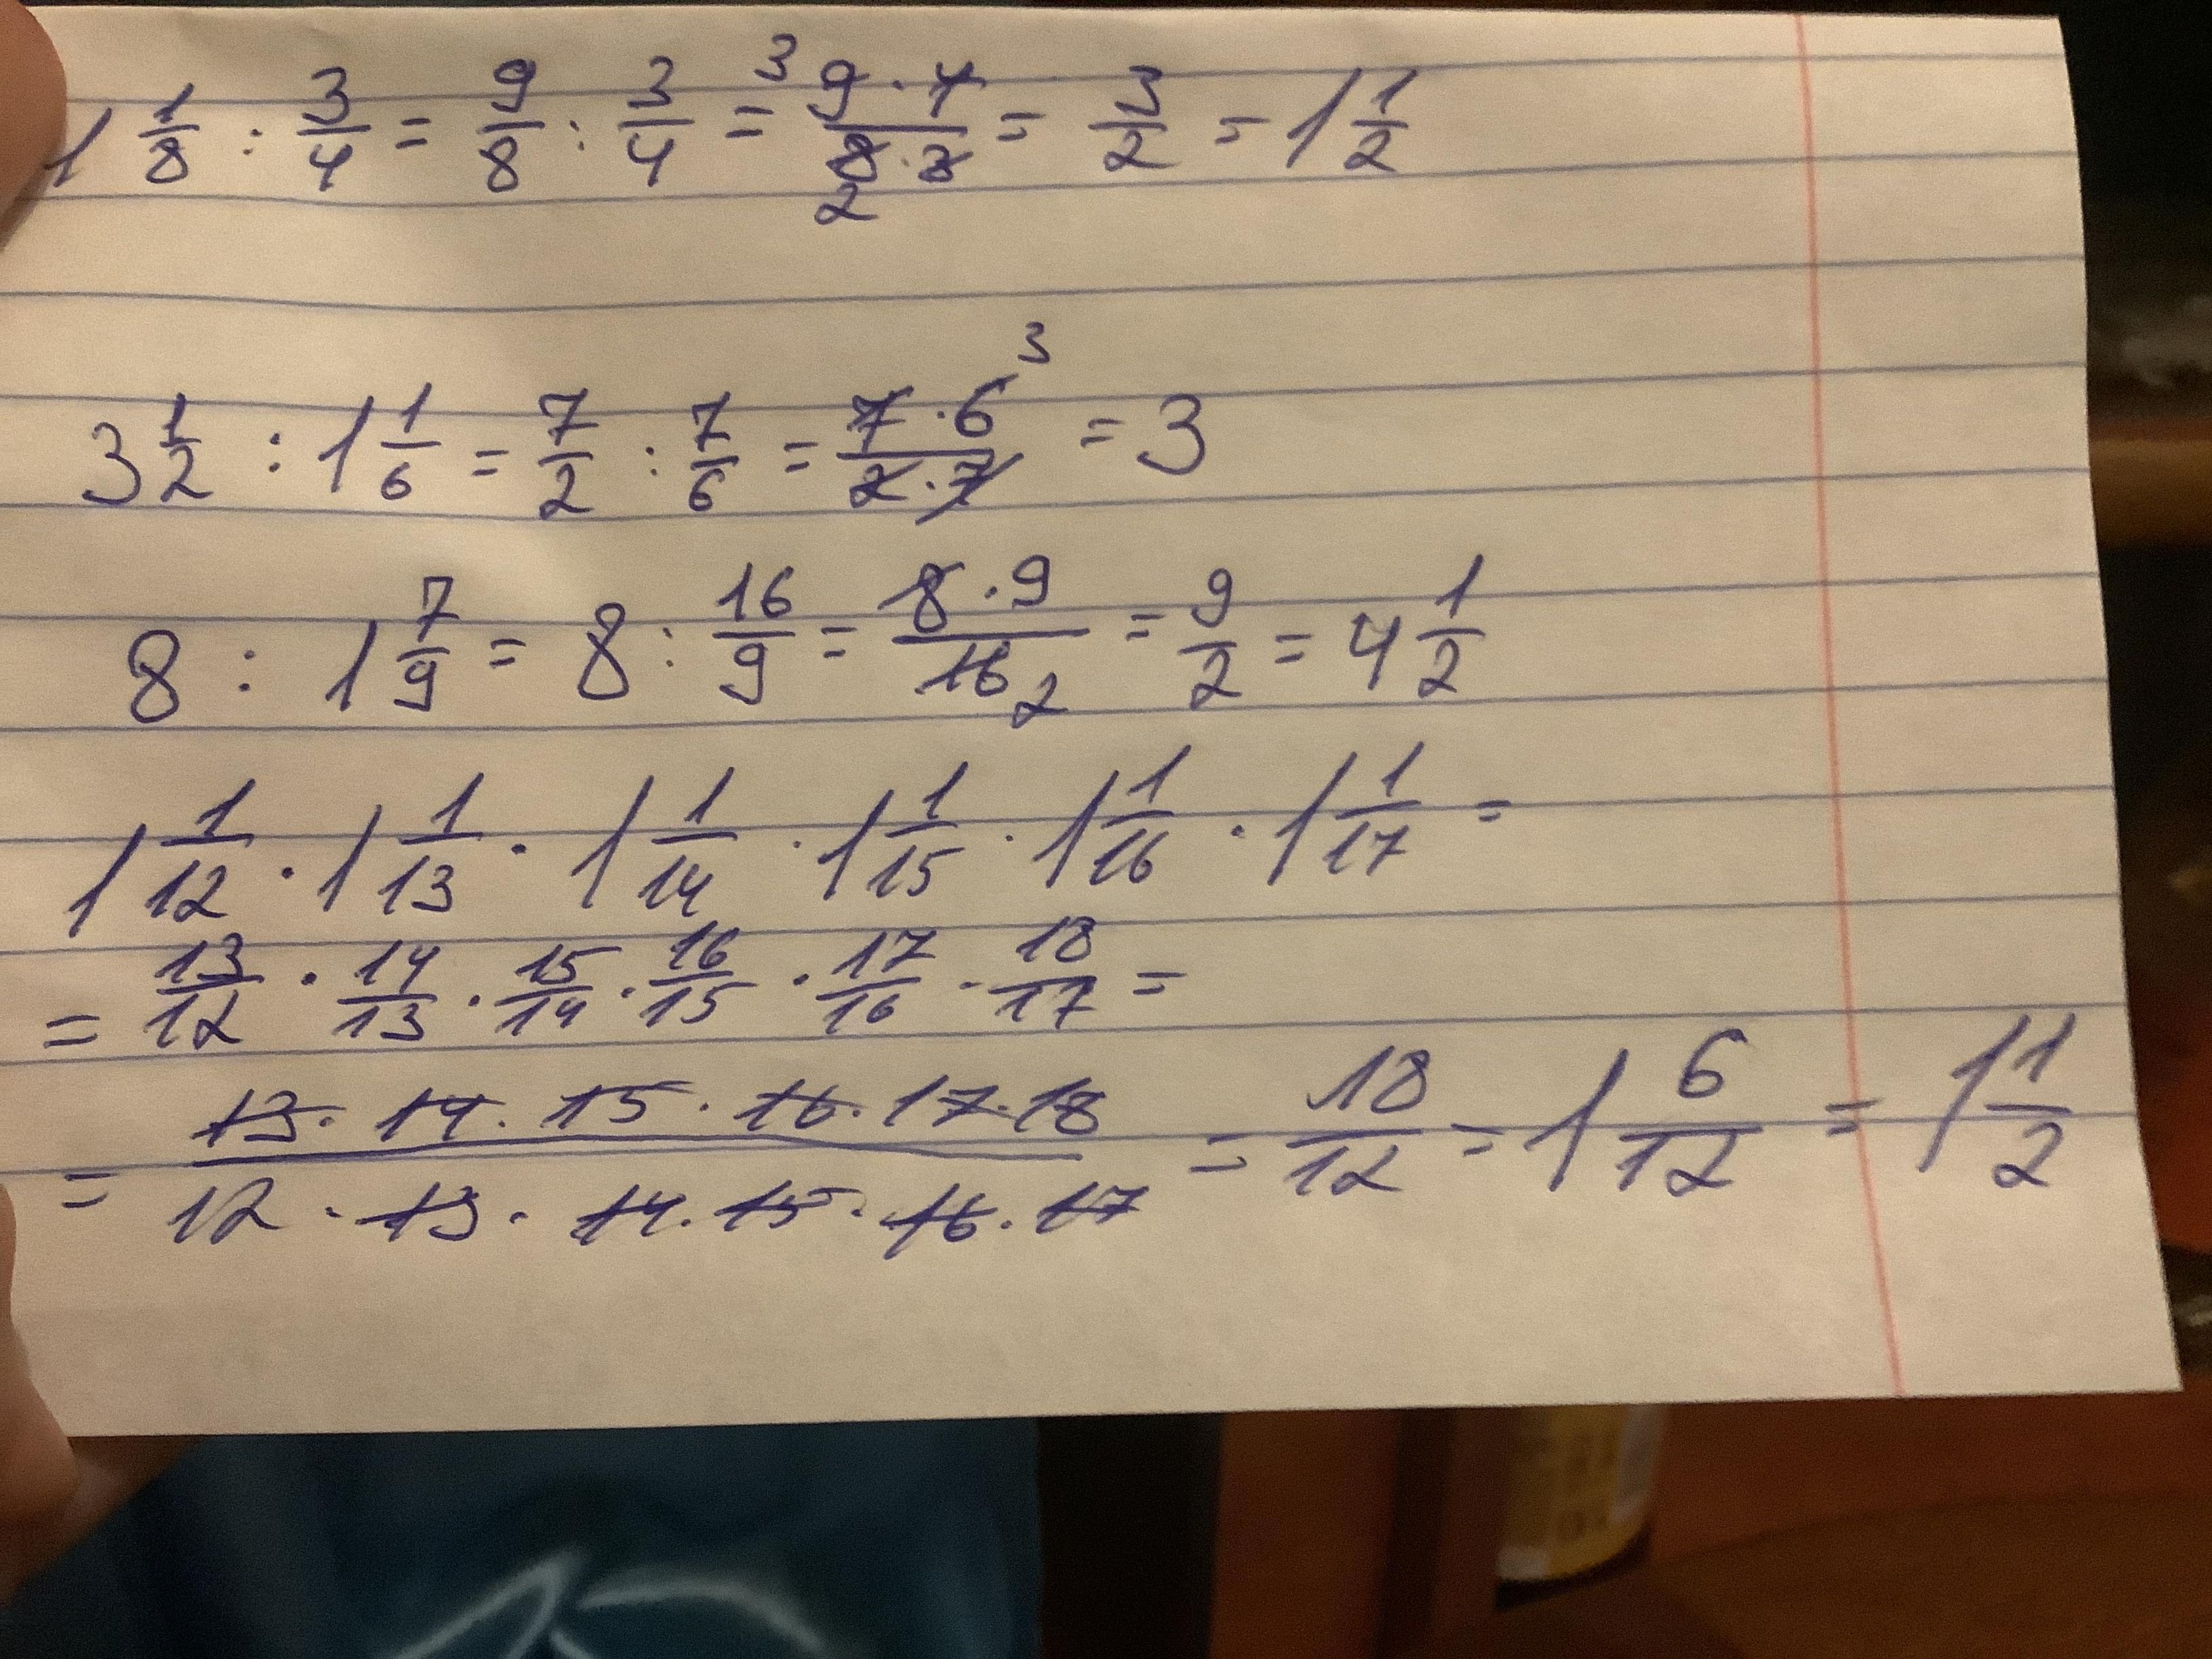 1 1/8 : 3/4 = 9/8 : 3/4 = 3 9·4/8·3 2 = 3/2 = 1 1/2
3 1/2 : 1 1/6 = 7/2 : 7/6 = 7·6 3/2·7 = 3
8 : 1 7/9 = 8 : 16/9 = 8·9/16 2 = 9/2 = 4 1/2
1 1/12 · 1 1/13 · 1 1/14 · 1 1/15 · 1 1/16 · 1 1/17 =
= 13/12 · 14/13 · 15/14 · 16/15 · 17/16 · 18/17 =
= 13·14·15·16·17·18/12·13·14·15·16·17 = 18/12 = 1 6/12 = 1 1/2